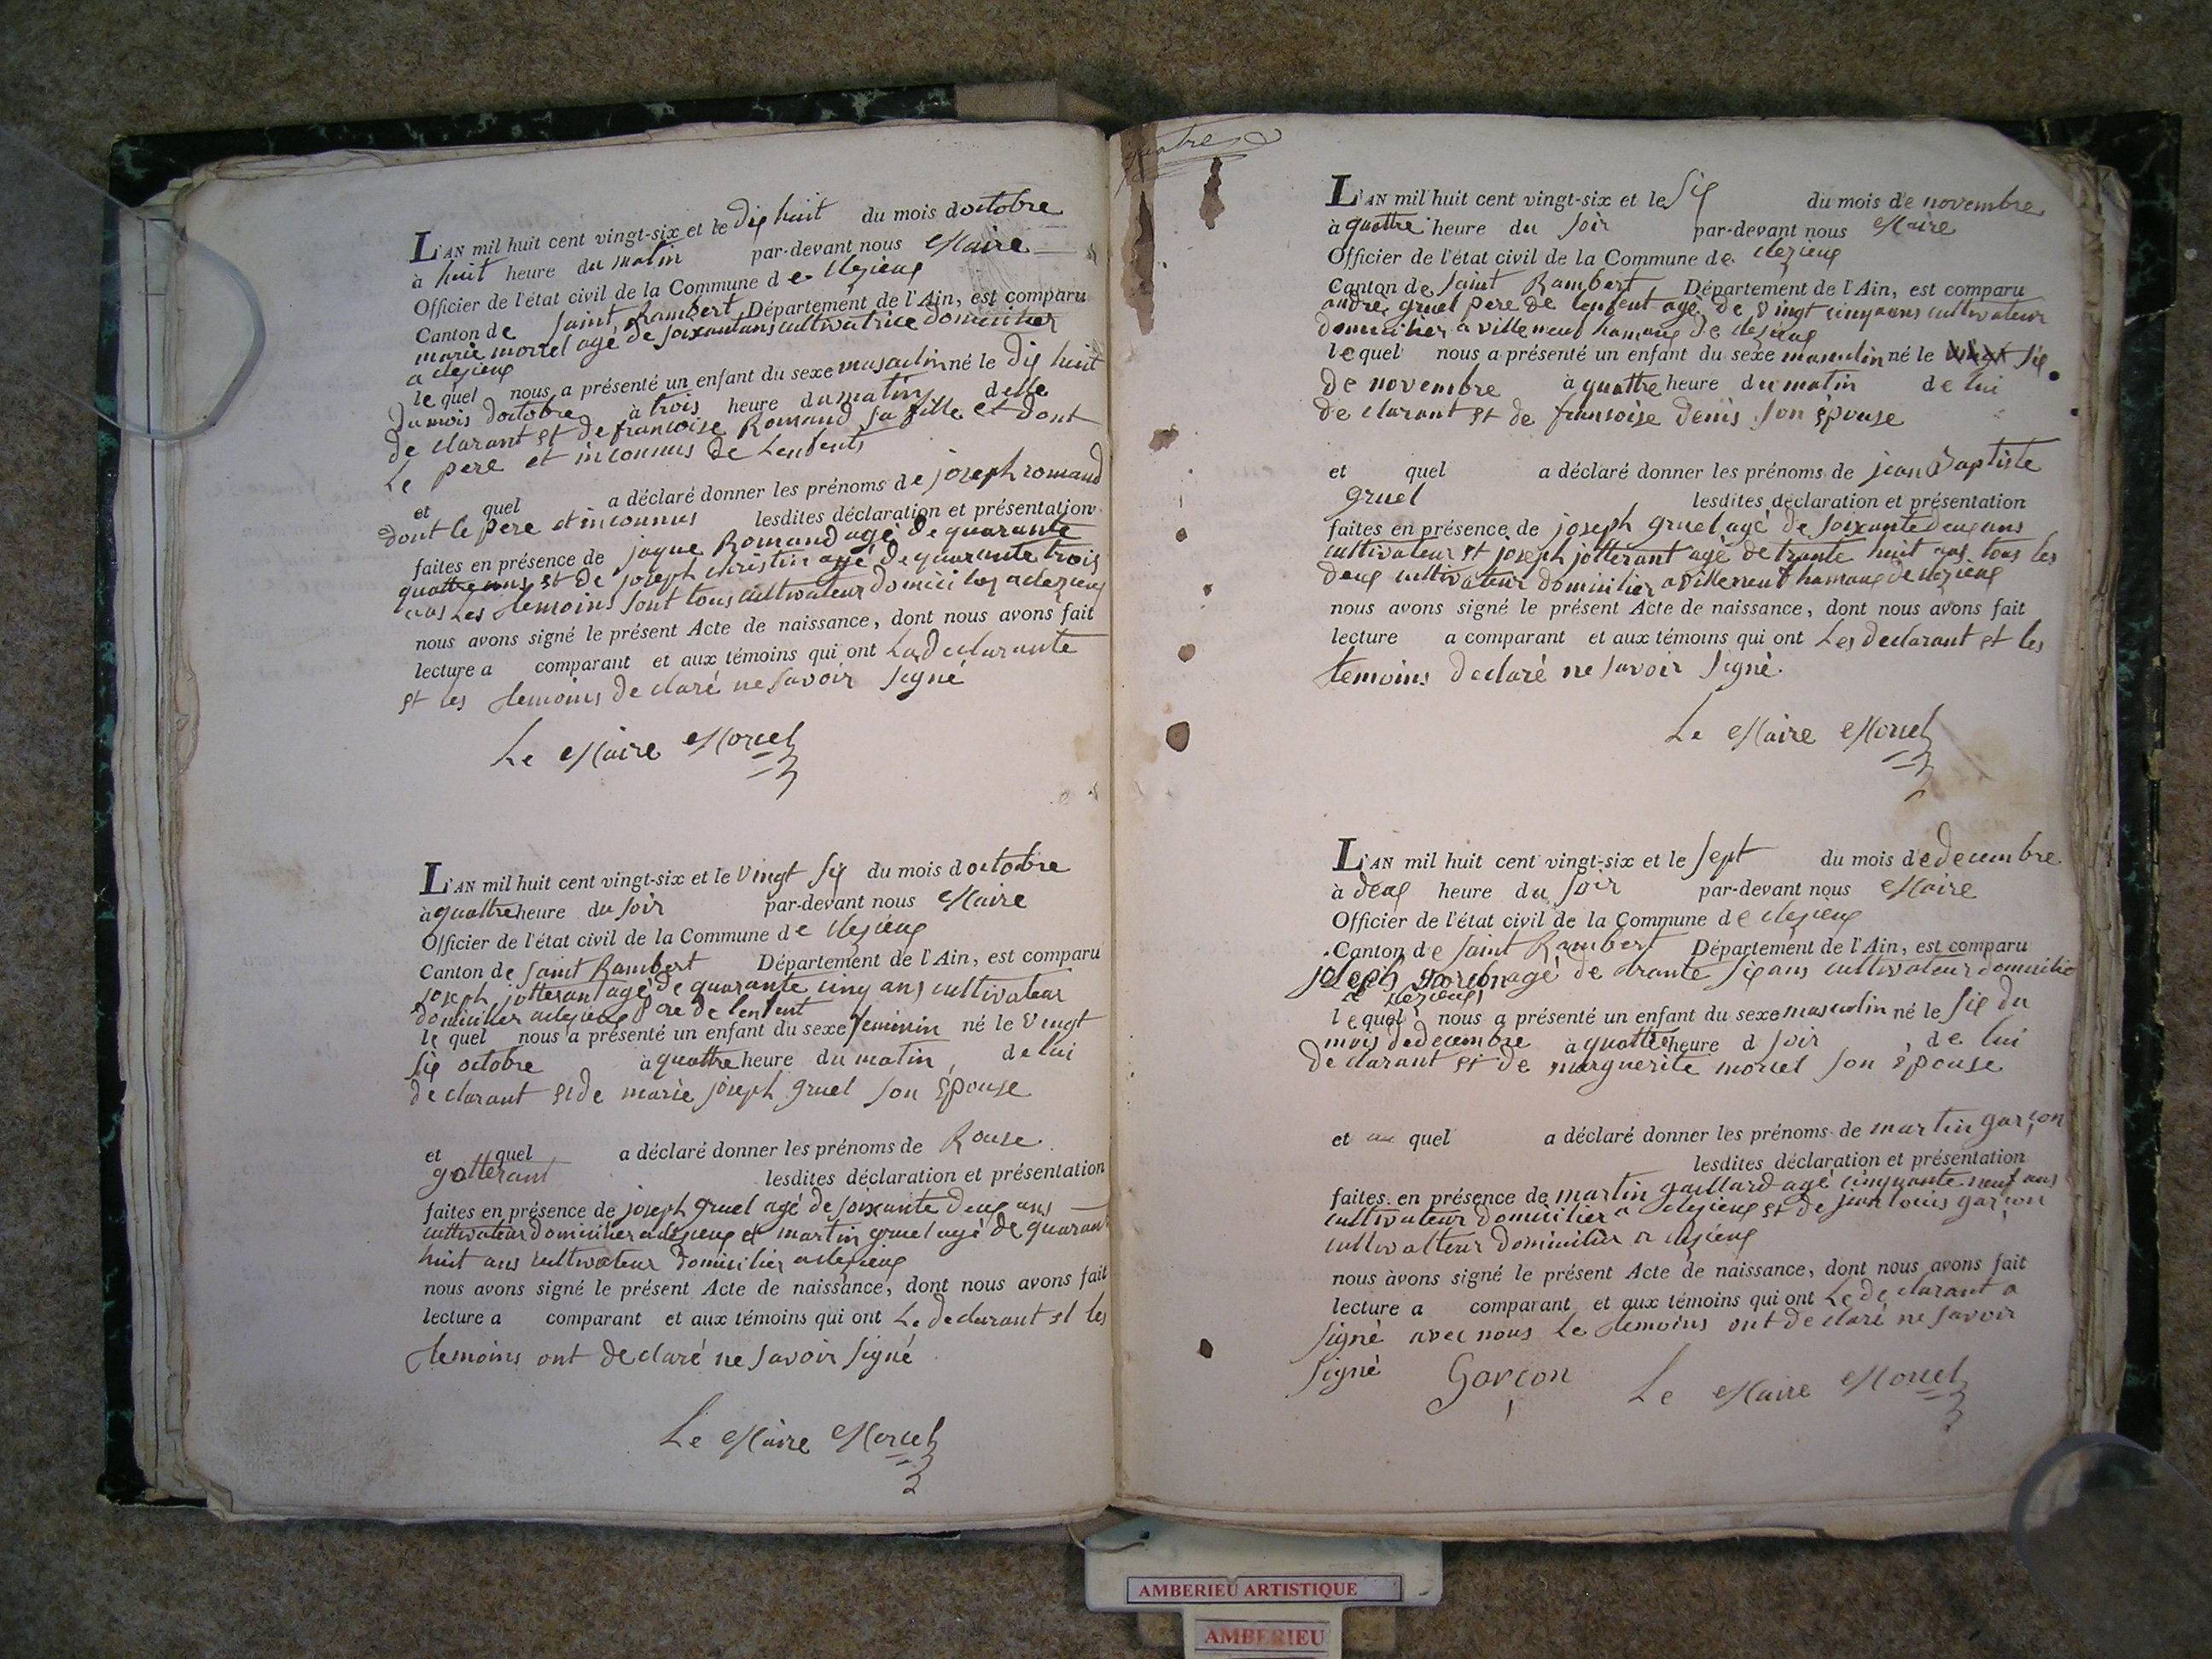 L'AN mil huit cent vingt-six et le dix huit du mois doctobre
à huit heure du matin par-devant nous Maire
Officier de l'état civil de la Commune de clezieux
Canton de saint Rambert Département de l'Ain, est comparu
marie morrel agé de soixantans cultivatrice domicilier
a clezieux
le quel nous a présenté un enfant du sexe masculin né le dix huit
du mois doctobre à trois heure du matin delle
de clarant et de francoise Romand sa fille et dont
Le pere et inconnus de Lenfents
et quel a déclaré donner les prénoms de joseph romand
dont le pere et inconnus lesdites déclaration et présentation
faites en présence de jaque Romand agé de quarante
quattre ans et de joseph christin agé de quarante trois
ans Les temoins sont tous cultivateur domicilez a clezieux
nous avons signé le présent Acte de naissance, dont nous avons fait
lecture a comparant et aux témoins qui ont La declarante
et les temoins de claré ne savoir signé
Le Maire Morrel
L'AN mil huit cent vingt-six et le vingt six du mois doctobre
à quattre heure du soir par-devant nous Maire
Officier de l'état civil de la Commune de clezieux
Canton de saint Rambert Département de l'Ain, est comparu
joseph jotterant agé de quarante cinq ans cultivateur
domicilier a clezieux pere de lenfent
le quel nous a présenté un enfant du sexe feminin né le vingt
six octobre à quattre heure du matin de lui
de clarant et de marie joseph gruel son épouse
et quel a déclaré donner les prénoms de Rouse
gotterant lesdites déclaration et présentation
faites en présence de joseph gruel agé de soixante deux ans
cultivateur domicilier a clezieux et martin gruel agé de quarant
huit ans cultivateur domicilier a clezieux
nous avons signé le présent Acte de naissance, dont nous avons fait
lecture a comparant et aux témoins qui ont Le declarant et les
temoins ont declaré ne savoir signé
Le Maire Morrel
quatre
L'AN mil huit cent vingt-six et le six du mois de novembre
à quattre heure du soir par-devant nous Maire
Officier de l'état civil de la Commune de clezieux
Canton de saint Rambert Département de l'Ain, est comparu
andre gruel pere de lenfent agé de vingt cinq ans cultivateur
domicilier a villeneuf hamaux de clezieux
le quel nous a présenté un enfant du sexe masculin né le vingt six
de novembre à quattre heure du matin de lui
de clarant et de fransoise denis son épouse
et quel a déclaré donner les prénoms de jean Baptiste
gruel lesdites déclaration et présentation
faites en présence de joseph gruel agé de soixante deux ans
cultivateur et joseph jotterant agé de trante huit ans tous les
deux cultivateur domicilier a villeneuf hamaux de clezieux
nous avons signé le présent Acte de naissance, dont nous avons fait
lecture a comparant et aux témoins qui ont Les declarant et les
temoins declaré ne savoir signé
Le Maire Morrel
L'AN mil huit cent vingt-six et le sept du mois de decembre
à deux heure du soir par-devant nous Maire
Officier de l'état civil de la Commune de clezieux
Canton de saint Rambert Département de l'Ain, est comparu
joseph garcon agé de trante six ans cultivateur domicilie
a clezieux
le quel nous a présenté un enfant du sexe masculin né le six du
mois de decembre à quattre heure d soir de lui
de clarant et de marguerite morrel son épouse
et au quel a déclaré donner les prénoms de martin garçon
lesdites déclaration et présentation
faites en présence de martin gaillard agé cinquante neuf ans
cultivateur domicilier a clezieux et de jean louis garçon
cultivatteur domicilier a clezieux
nous avons signé le présent Acte de naissance, dont nous avons fait
lecture a comparant et aux témoins qui ont Le de clarant a
signé avec nous Le temoins ont de claré ne savoir
signé Garçon Le Maire Morrel
AMBERIEU ARTISTIQUE
AMBERIEU